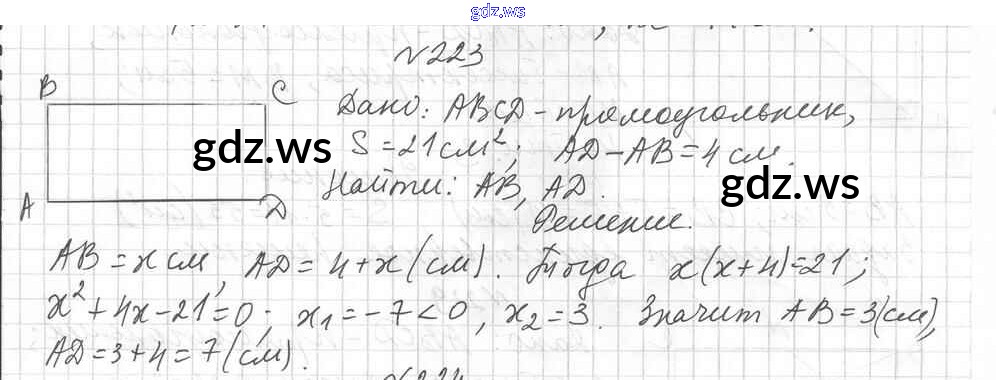 gdz.ws
№223
B C
Дано: ABCD – прямоугольник,
S = 21 см²; AD – AB = 4 см.
gdz.ws
Найти: AB, AD.
gdz.ws
A D
Решение.
AB = x см, AD = 4 + x (см). Тогда x(x+4) = 21;
x² + 4x – 21 = 0; x₁ = –7 < 0, x₂ = 3. Значит AB = 3 (см),
AD = 3 + 4 = 7 (см).
№224